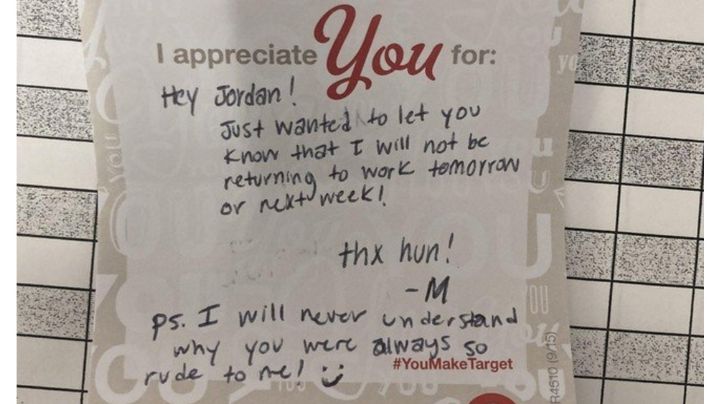 I appreciate You for:
Hey Jordan!
Just wanted to let you
know that I will not be
returning to work tomorrow
or next week!
thx hun!
-M
ps. I will never understand
why you were always so
rude to me!
#YouMakeTarget
R4510 (9/15)